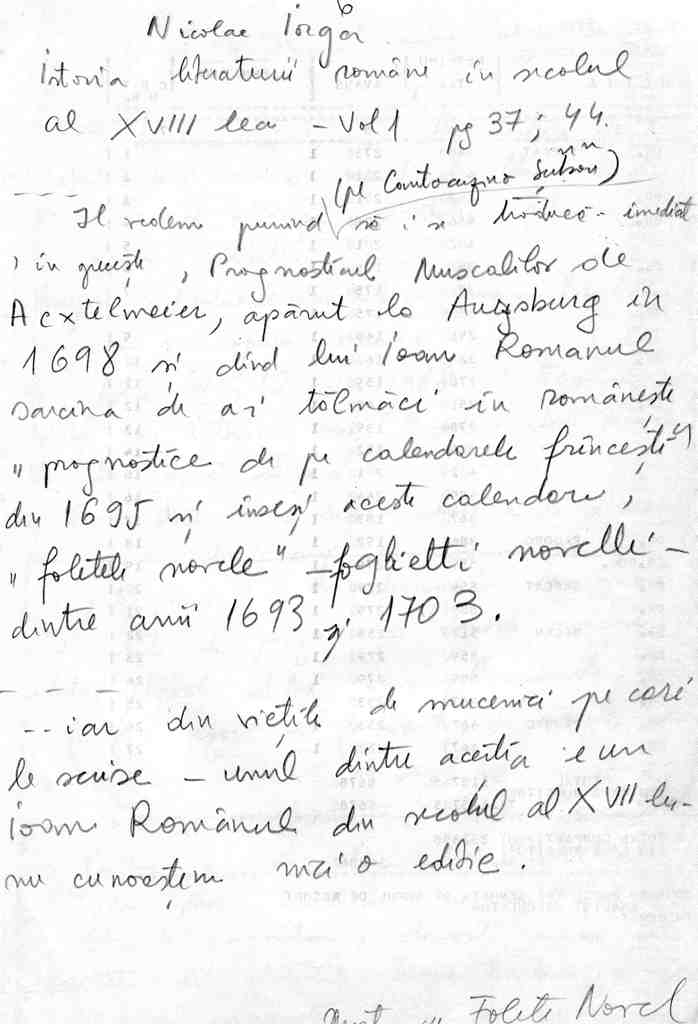 6
Nicolae Iorga
Istoria literaturii române în secolul
al XVIII lea - Vol 1 pg 37; 44.
(pe Cantacuzino Șerban)
---- Il vedem punînd să i se traducă imediat
, în grecește, Prognosticul Muscalilor de
Acxtelmeier, apărut la Augsburg în
1698 și dînd lui Ioan Românul
sarcina de a-i tălmăci în românește
„prognostice de pe calendarele frîncești"
din 1695 și însești aceste calendare,
„foletele novele" - foglietti novelli -
dintre anii 1693 și 1703.
- - ----
-- iar din viețile de mucenici pe cari
le scrise - unul dintre aceștia e un
Ioan Românul din secolul al XVII lea -
nu cunoaștem nici o ediție.
„ Folete Novel